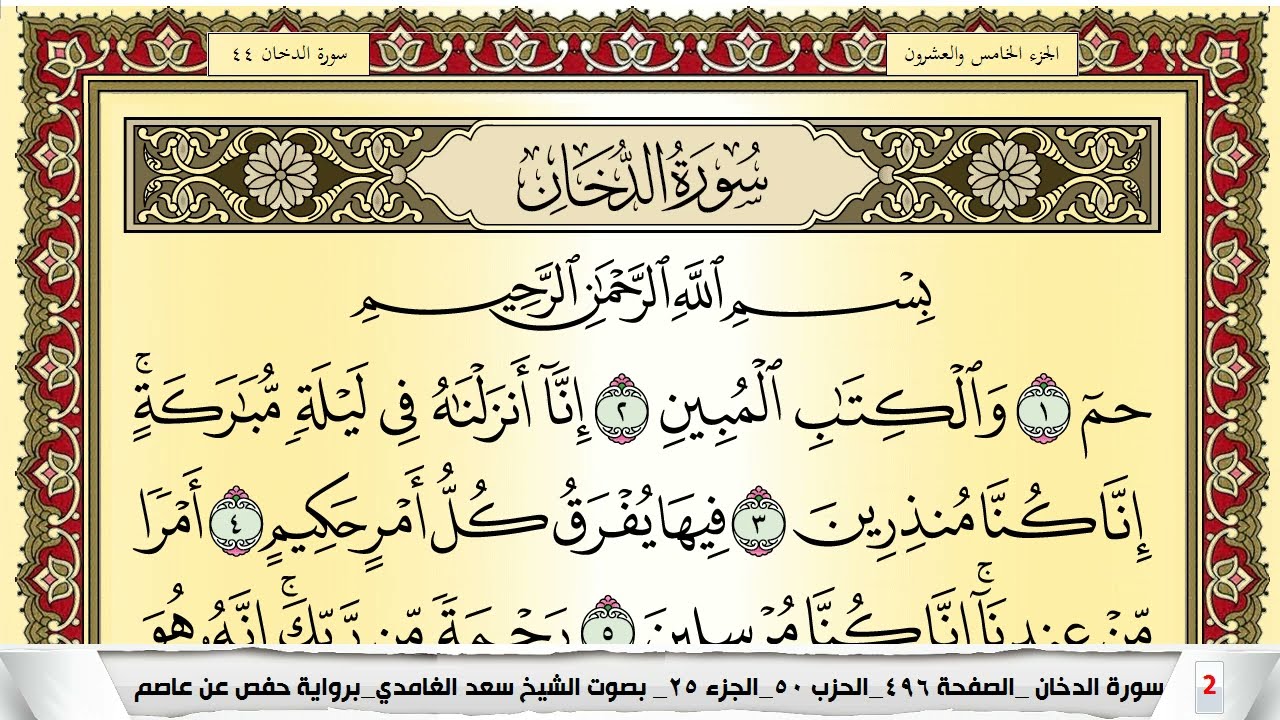 الجزء الخامس والعشرون
سورة الدخان ٤٤
سُورَةُ الدُّخَانِ
بِسْمِ ٱللَّهِ ٱلرَّحْمَٰنِ ٱلرَّحِيمِ
حمٓ ١ وَٱلْكِتَٰبِ ٱلْمُبِينِ ٢ إِنَّآ أَنزَلْنَٰهُ فِى لَيْلَةٍ مُّبَٰرَكَةٍ ۚ
إِنَّا كُنَّا مُنذِرِينَ ٣ فِيهَا يُفْرَقُ كُلُّ أَمْرٍ حَكِيمٍ ٤ أَمْرًا
مِّنْ عِندِنَآ ۚ إِنَّا كُنَّا مُرْسِلِينَ ٥ رَحْمَةً مِّن رَّبِّكَ ۚ إِنَّهُۥ هُوَ
2 سورة الدخان _الصفحة ٤٩٦_الحزب ٥٠_الجزء ٢٥_ بصوت الشيخ سعد الغامدي_برواية حفص عن عاصم